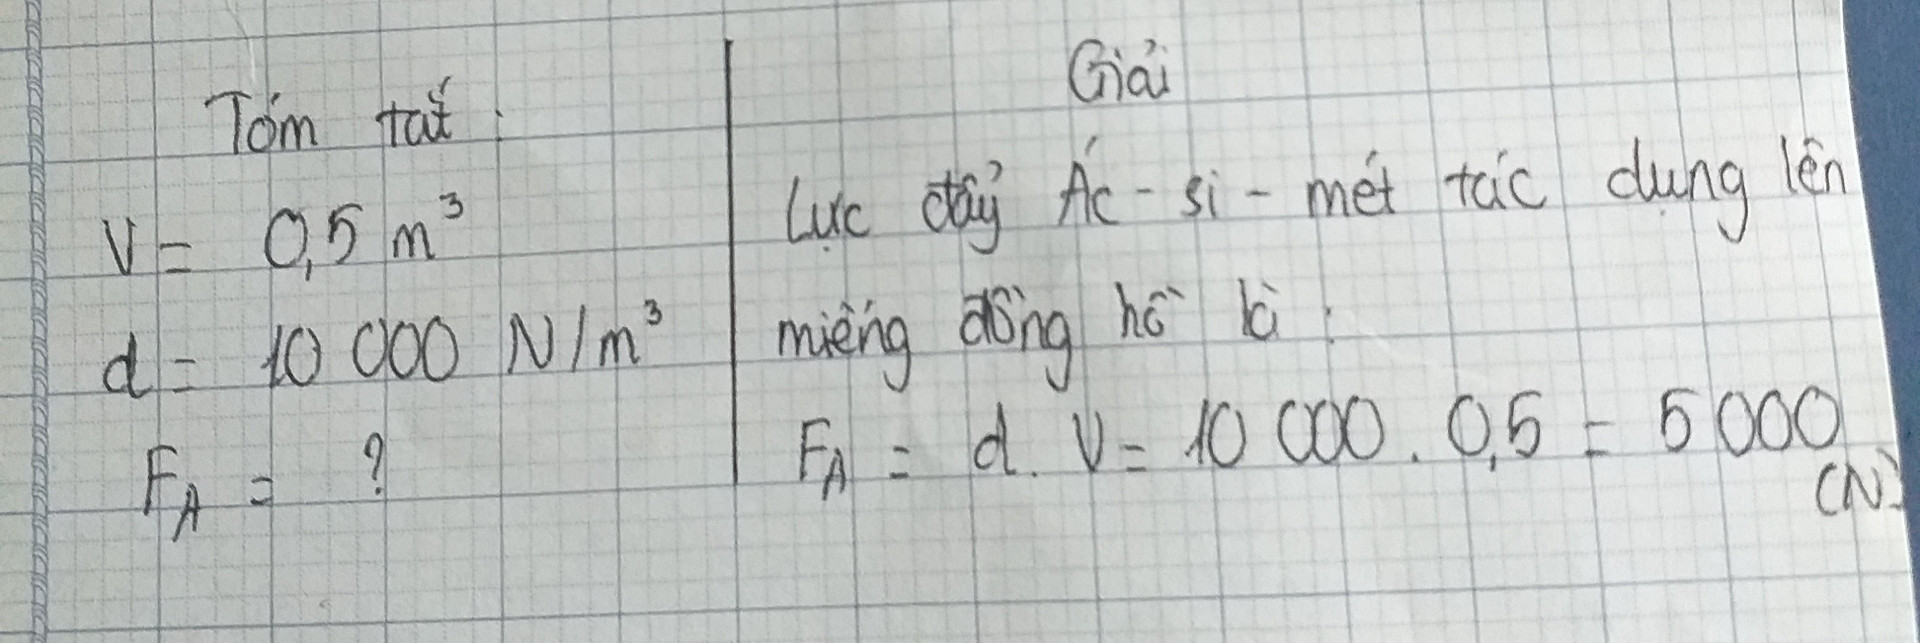 Tóm tắt :
V = 0,5 m³
d = 10 000 N/m³
F_A = ?
Giải
Lực đẩy Ác - si - mét tác dụng lên
miếng đồng hồ là :
F_A = d. V = 10 000 . 0,5 = 5 000
(N)